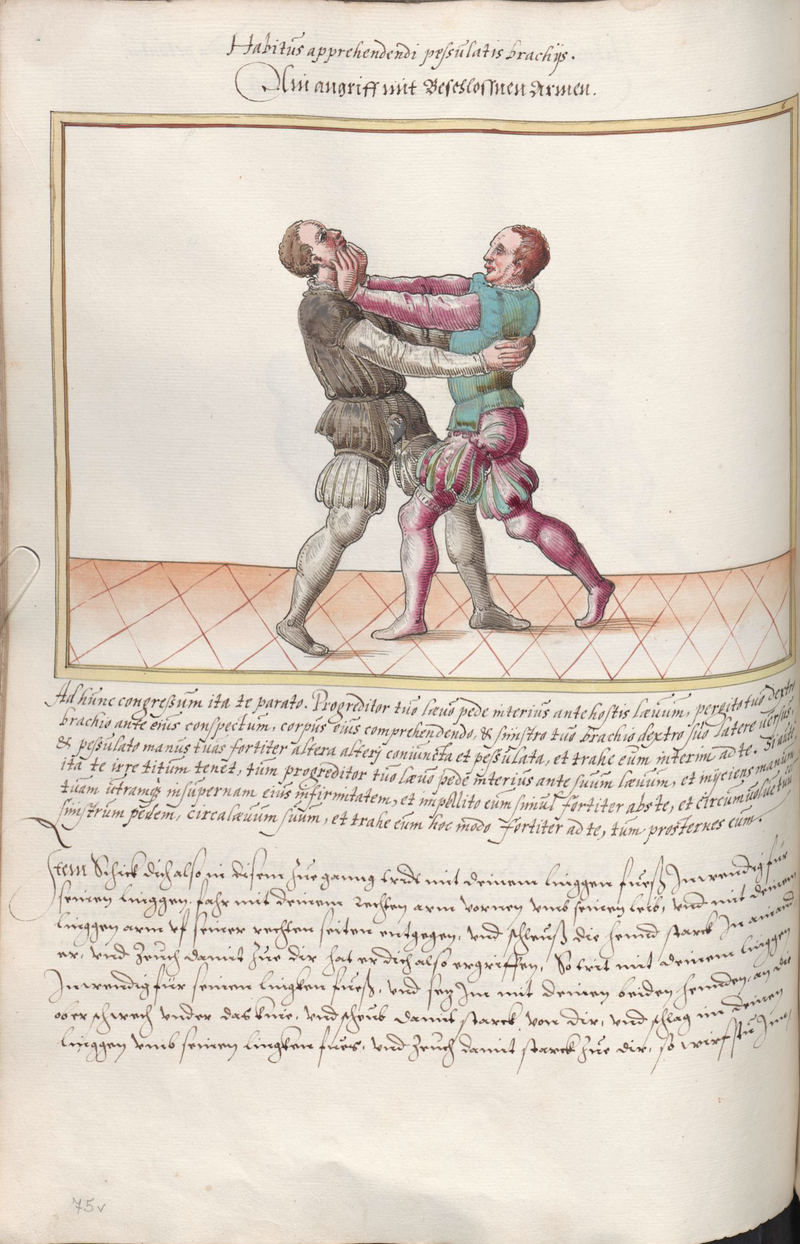 Habitus apprehendendi pessulatis brachijs.
Ain angriff mit Beschlossnen Armen.
6
Ad hunc congressum ita te parato. Progreditor tuo laevo pede interius ante hostis laevum, pergito tuo dextro
brachio ante eius conspectum, corpus eius comprehendendo, & sinistro tuo brachio dextro suo latere versus,
& pessulato manus tuas fortiter altera alterj coniuncta et pessulata, et trahe eum interim ad te. Si autem
ita te irretitum tenet, tum progreditor tuo laevo pede interius ante suum laevum, et inijciens manum
tuam utramq; in supernam eius infirmitatem, et impellito eum simul fortiter abs te, et circumvolue tuum
sinistrum pedem, circa laevum suum, et trahe eum hoc modo fortiter ad te, tum prosternes eum.
Item Schick dich also in disem zueganng trit mit deinem linggen fuess Inwendig für
seinen linggen, fahr mit deinem rechten arm vornen umb seinen leib, und mit deinem
linggen arm uf seiner rechten seiten entgegen, und schleuss die hennd starck In ainand
er, und zeuch damit zue dir, hat er dich also ergriffen, So trit mit deinem linggen
Inwendig für seinen lingken fuess, und setz Im mit deinen beiden hennden, an die
ober schwech under das knie, und scheub damit starck von dir, und schlag im deinen
linggen umb seinen lingken fues, und zeuch damit starck zue dir, so wirfstu Ine.
75v